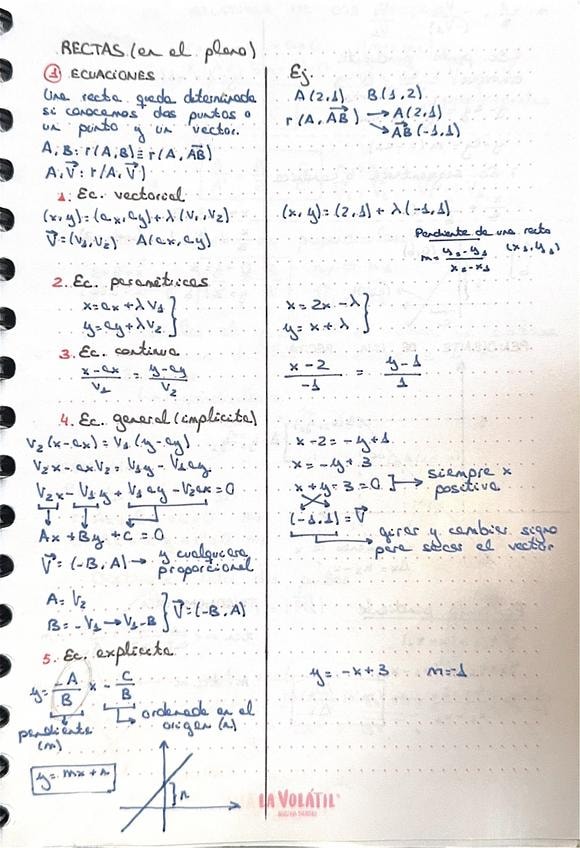 RECTAS (en el plano)
① ECUACIONES
Una recta queda determinada
si conocemos dos puntos o
un punto y un vector.
A, B: r(A,B) ≡ r(A, AB⃗)
A, V⃗: r(A, V⃗)
1. Ec. vectorial
(x,y)=(ax,ay)+λ(V₁,V₂)
V⃗=(V₁,V₂) A(ax,ay)
2. Ec. paramétricas
x=ax+λV₁
y=ay+λV₂
3. Ec. continua
x-ax/V₁ = y-ay/V₂
4. Ec. general (implícita)
V₂(x-ax)=V₁(y-ay)
V₂x-axV₂=V₁y-V₁ay
V₂x-V₁y+V₁ay-V₂ax=0
Ax+By+C=0
V⃗=(-B,A)→ y cualquiera
proporcional
A=V₂
B=-V₁→V₁-B } V⃗=(-B,A)
5. Ec. explícita
y= -A/B x - C/B
pendiente
(m)
ordenada en el
origen (n)
y=mx+n
n
Ej.
A(2,1) B(1,2)
r(A, AB⃗) → A(2,1)
→ AB⃗(-1,1)
(x,y)=(2,1)+λ(-1,1)
Pendiente de una recta
m= y₂-y₁/x₂-x₁ (x₁,y₁)
x=2x-λ
y=x+λ
x-2/-1 = y-1/1
x-2=-y+1
x=-y+3
x+y=3=0 → siempre x
positiva
(-1,1)=V⃗
→ girar y cambiar signo
para sacar el vector
y=-x+3 m=-1
LA VOLÁTIL